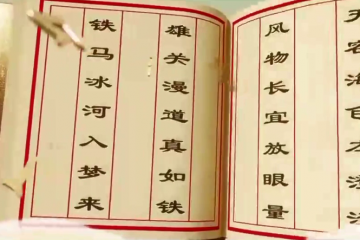 风物长宜放眼量
雄关漫道真如铁
铁马冰河入梦来